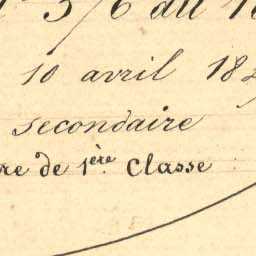 10 avril
secondaire
re de 1ère Classe